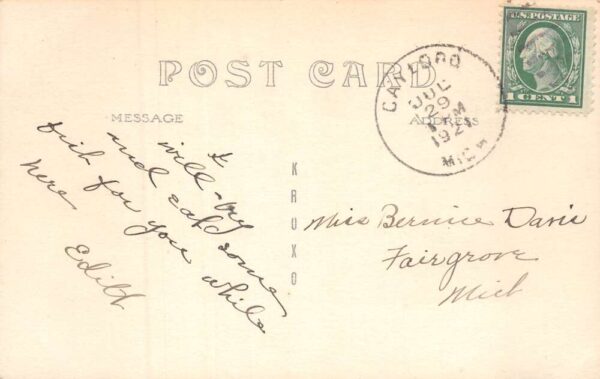 U.S. POSTAGE
1 CENT 1
POST CARD
JUL
29
PM
1921
MICH
MESSAGE
ADDRESS
I
will try
and eat some
fish for you while
here
Edith
KRUXO
Miss Bernice Davis
Fairgrove
Mich